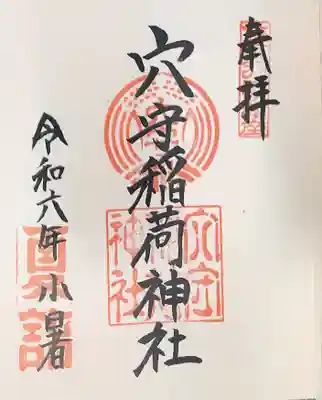 奉拝
穴守稲荷神社
穴守稲荷神社
令和六年小暑